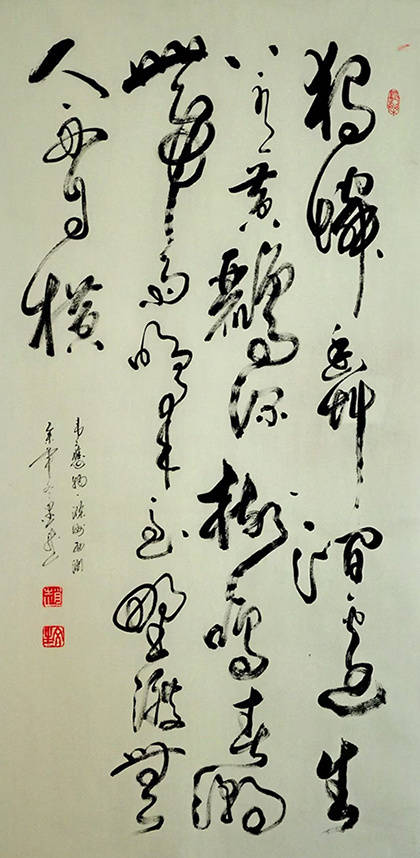 獨憐幽草澗邊生
上有黃鸝深樹鳴春潮
帶雨晚來急野渡無
人舟自橫
韋應物滁州西澗